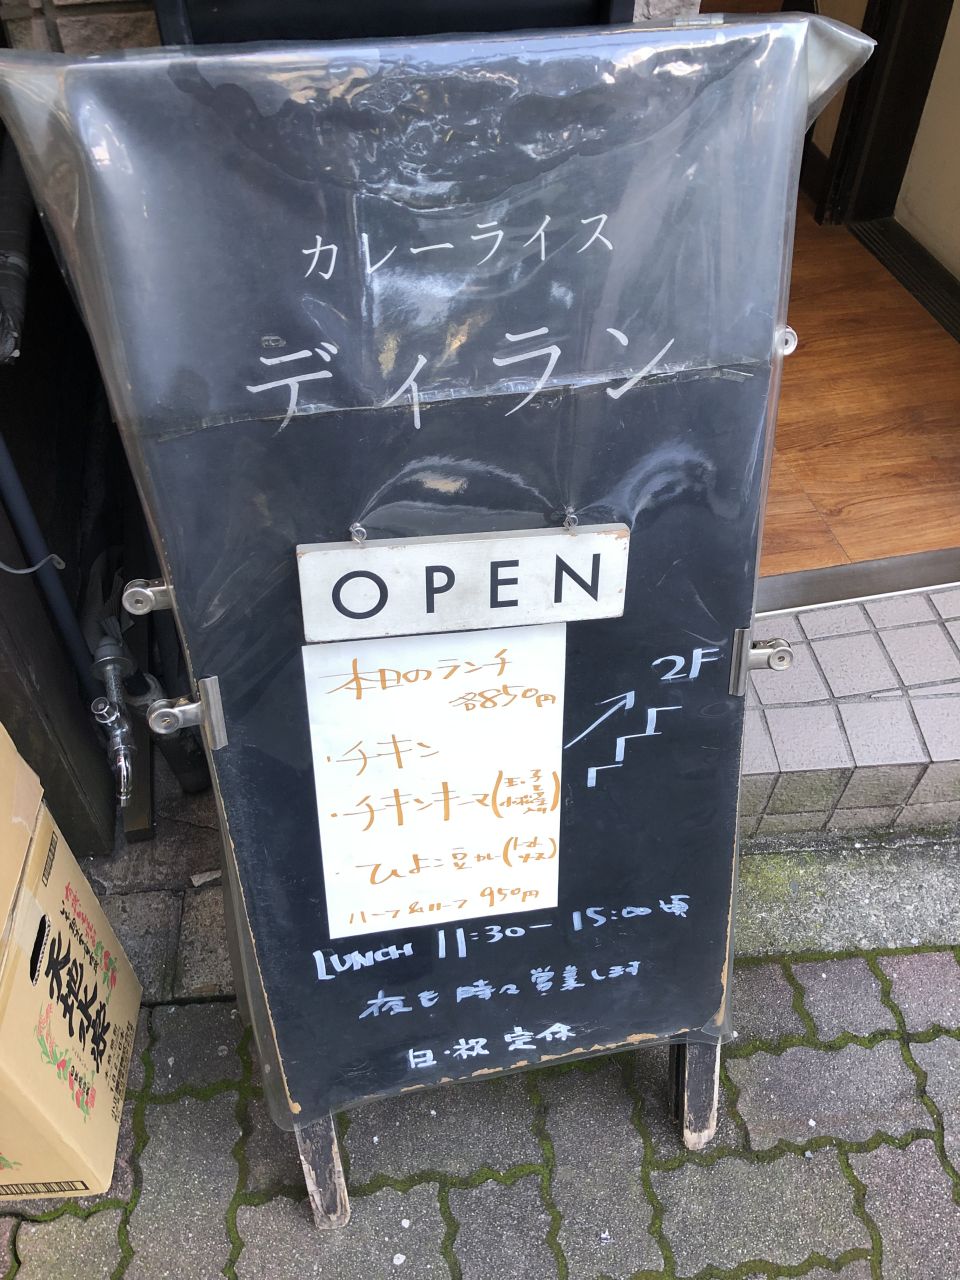 カレーライス
ディラン
OPEN
本日のランチ
各850円
・チキン
・チキンキーマ(玉子と小松菜入り)
・ひよこ豆カレー(トマトソース)
ハーフ&ハーフ 950円
2F
LUNCH 11:30-15:00頃
夜も時々営業します
日・祝 定休
天地水楽